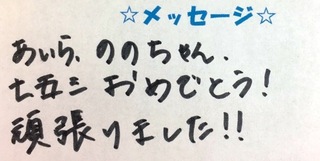 ☆メッセージ☆
あいら、ののちゃん、
七五三 おめでとう！
頑張りました!!